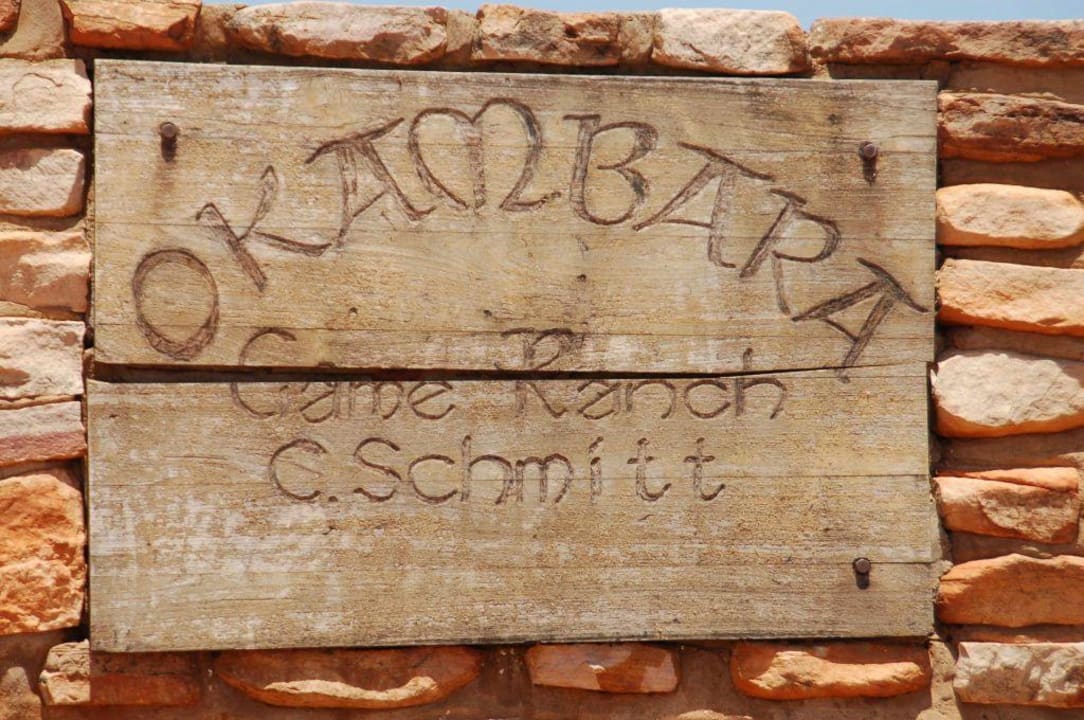 OKAMBARA
Game Ranch
C. Schmitt